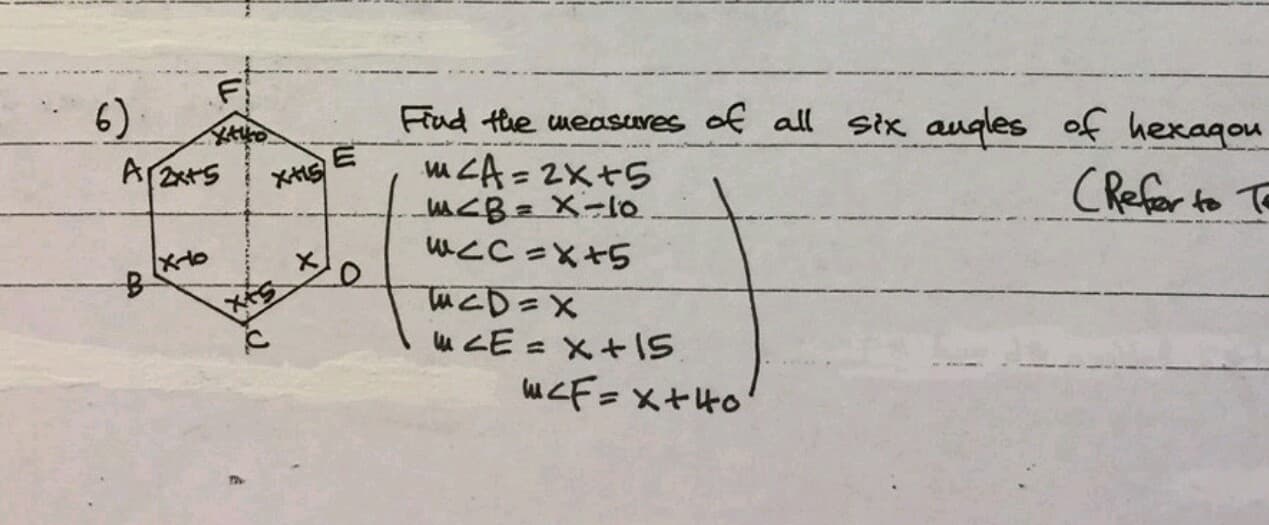 6)
F
x+40
A
2x+5
x+15
E
B
x-10
x
D
x+5
C
Find the measures of all six angles of hexagon
(Refer to
m∠A = 2x+5
m∠B = x-10
m∠C = x+5
m∠D = x
m∠E = x+15
m∠F = x+40